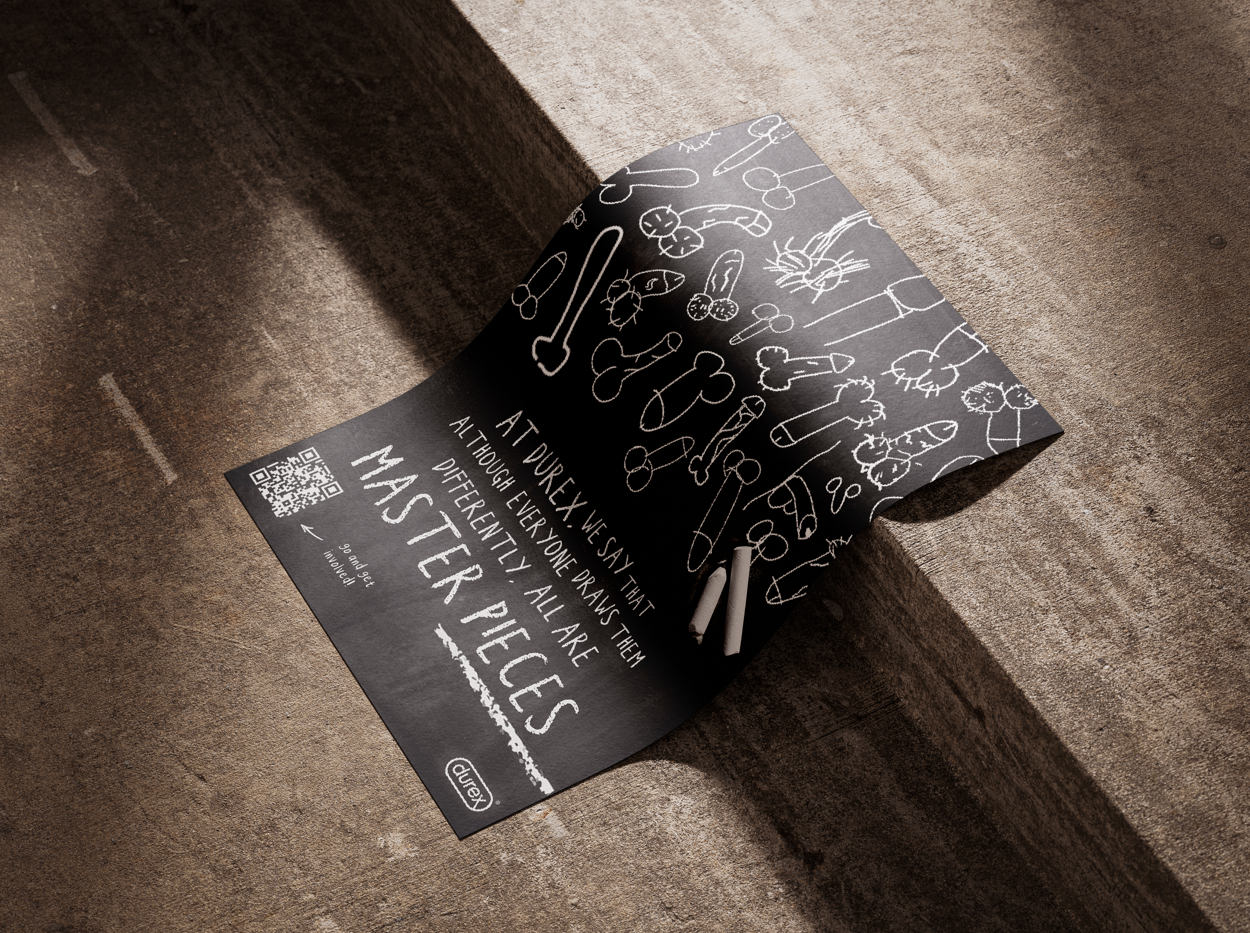 AT DUREX, WE SAY THAT
ALTHOUGH EVERYONE DRAWS THEM
DIFFERENTLY, ALL ARE
MASTER PIECES
go and get
involved!
durex